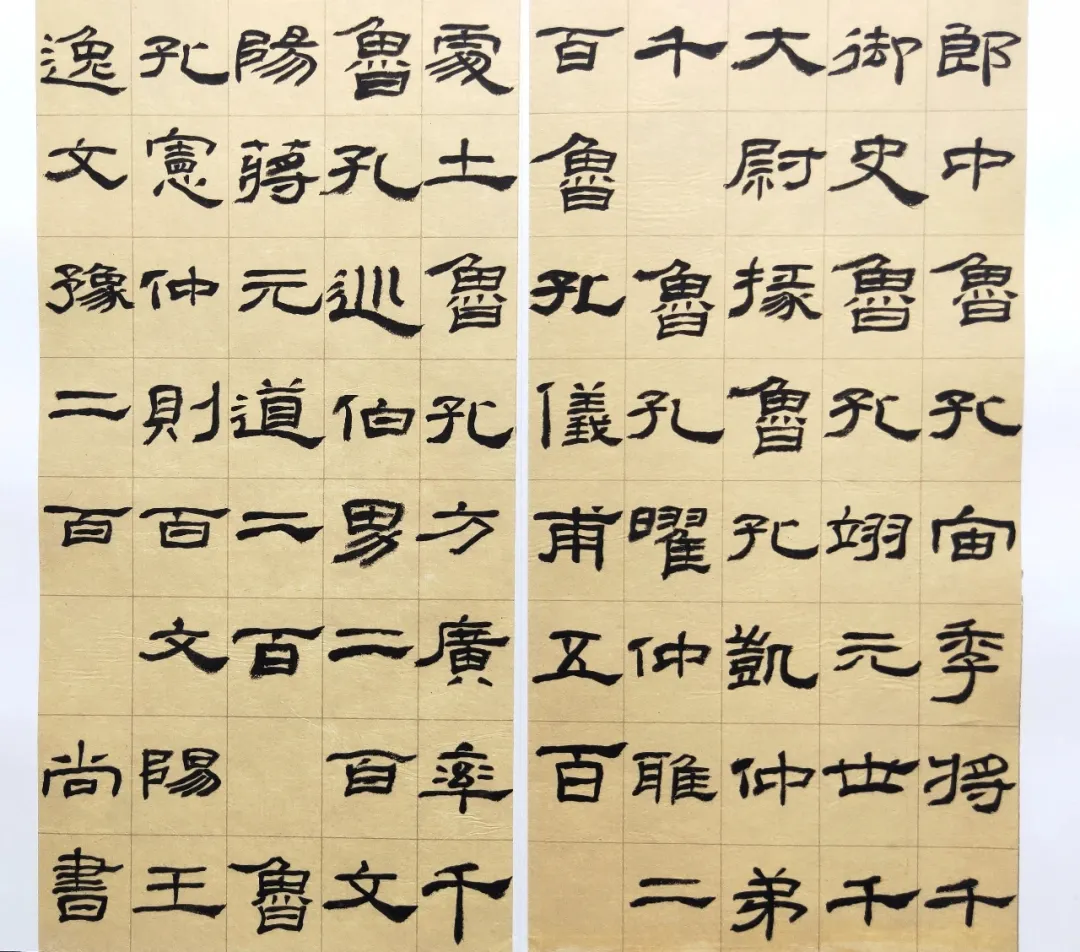 郎中魯孔宙季将千
御史魯孔翊元世千
大尉掾魯孔凱仲弟
千 魯孔曜仲雅二
百魯孔儀甫五百
處土魯孔方廣率千
魯孔巡伯男二百文
陽蔣元道二百 魯
孔憲仲則百文陽王
逸文豫二百 尚書